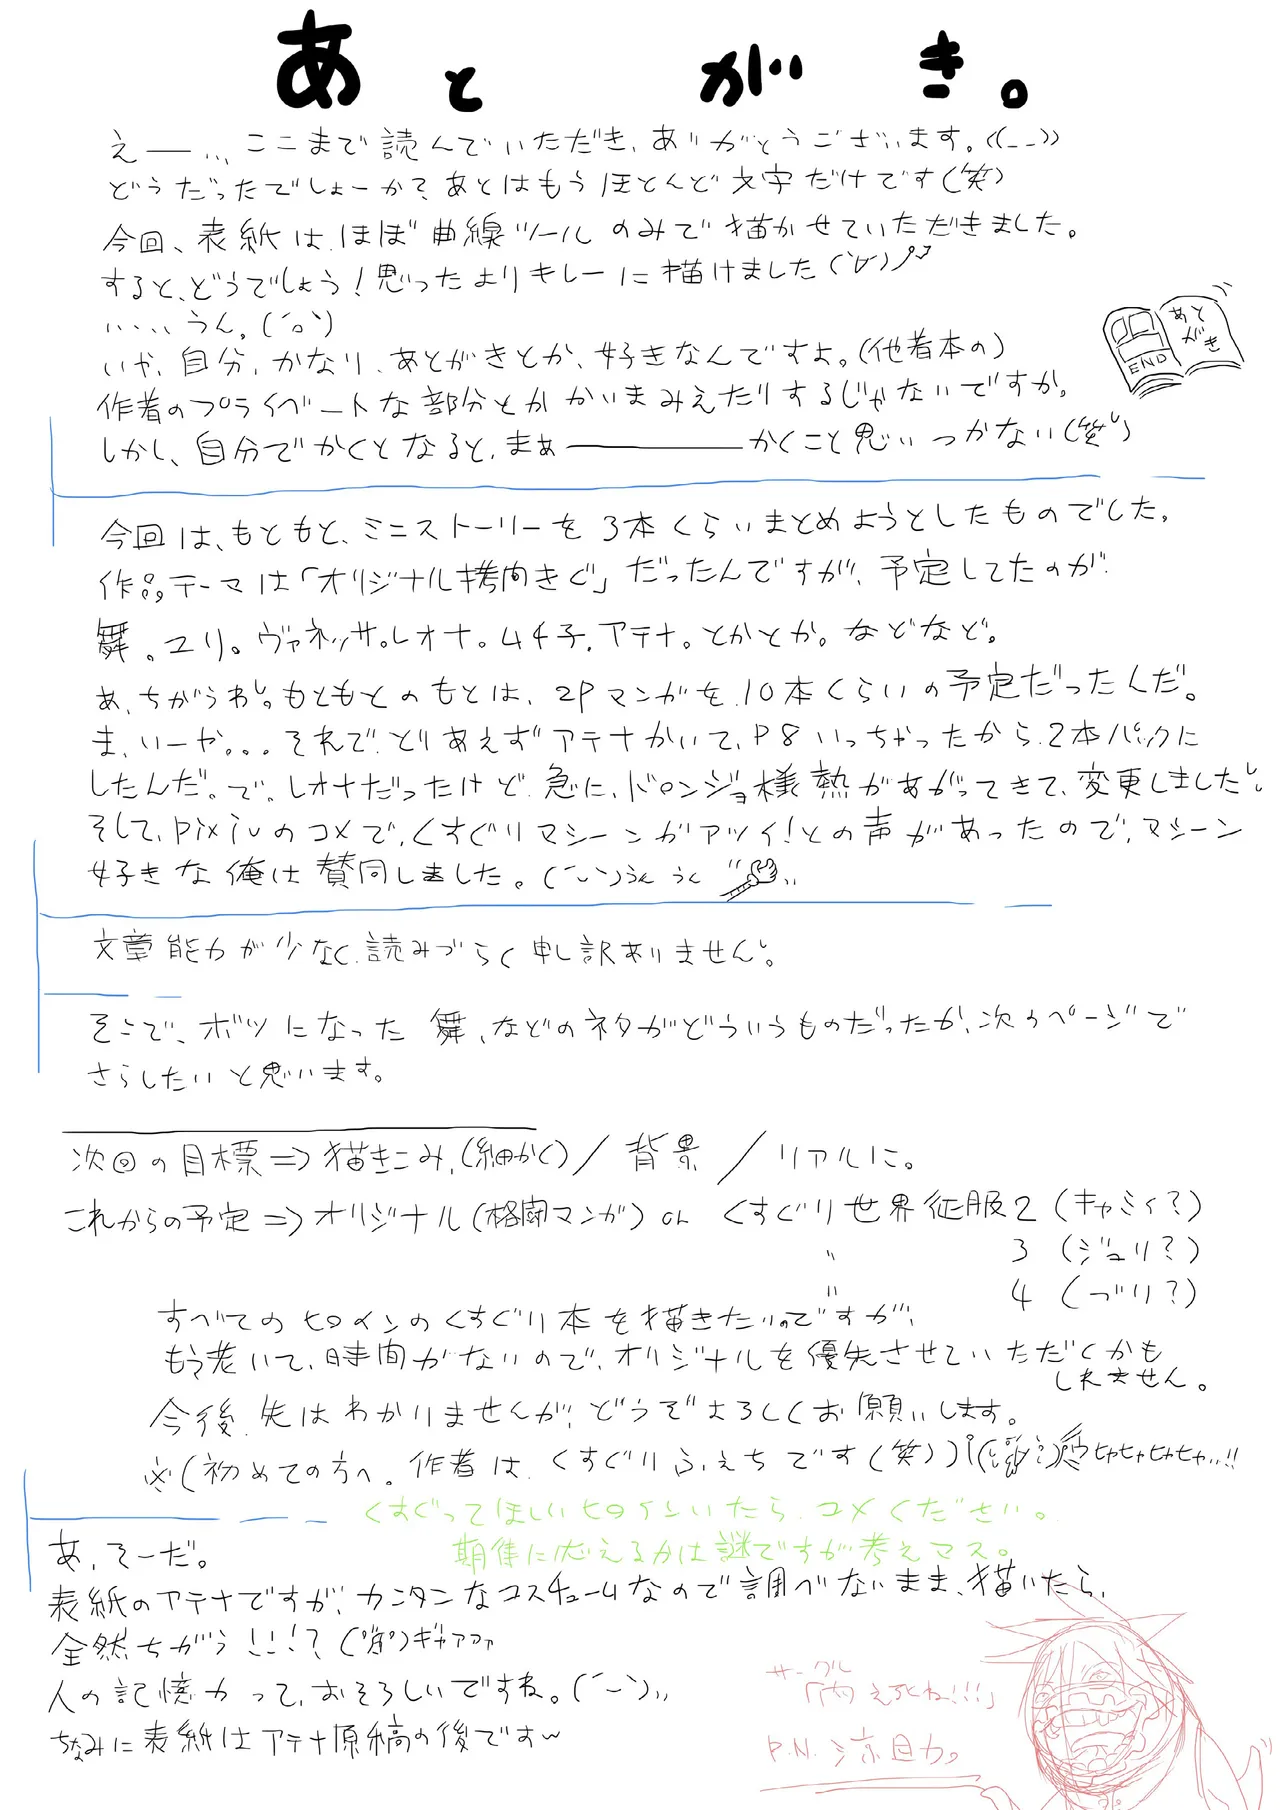 あとがき。
えー…ここまで読んでいただき、ありがとうございます。((_ _))
どうだったでしょーか?あとはもうほとんど文字だけです(笑)
今回、表紙は、ほぼ曲線ツールのみで描かせていただきました。
すると、どうでしょう!思ったよりキレーに描けました(´∀`)ノ♪
……うん。(´o`)
いや、自分、かなり、あとがきとか、好きなんですよ。(他者本の)
作者のプライベートな部分とかかいまみえたりするじゃないですか。
しかし、自分でかくとなると、まぁ――――かくこと思いつかない(笑)
あとがき
END
今回は、もともと、ミニストーリーを3本くらいまとめようとしたものでした。
作品テーマは「オリジナル拷問きぐ」だったんですが、予定してたのが
舞。ユリ。ヴァネッサ。レオナ。ムチ子。アテナ。とかとか。などなど。
あ、ちがうわ。もともとのもとは、2Pマンガを、10本くらいの予定だったんだ。
ま、いーや。。。それで、とりあえずアテナかいて、P8いっちゃったから、2本パックに
したんだ。で。レオナだったけど急に、ドロンジョ様熱があがってきて、変更しました。
そして、pixivのコメで、くすぐりマシーンがアツイ!との声があったので、マシーン
好きな俺は賛同しました。(´ー`)うんうん
文章能力が少なく、読みづらく申し訳ありません。
そこで、ボツになった舞、などのネタがどういうものだったか、次のページで
さらしたいと思います。
次回の目標⇒描きこみ、(細かく)/背景/リアルに。
これからの予定⇒オリジナル(格闘マンガ)or くすぐり世界征服2(キャミィ?)
〃 3(ジュリ?)
〃 4(づり?)
すべてのヒロインのくすぐり本を描きたいのですが、
もう老いて、時間がないので、オリジナルを優先させていただくかも
しれません。
今後、先はわかりませんが、どうぞよろしくお願いします。
※(初めての方へ。作者は、くすぐりふぇちです(笑))ヒャヒャヒャヒャ…!!
くすぐってほしいヒロインいたら、コメください。
期待に応えるかは謎ですが考えマス。
あ、そーだ。
表紙のアテナですが、カンタンなコスチュームなので調べないまま、描いたら、
全然ちがう!!!?ギャアアァァ
人の記憶力って、おそろしいですね。(´ー`)
ちなみに表紙はアテナ原稿の後です〜
サークル
P.N. 涼目力。